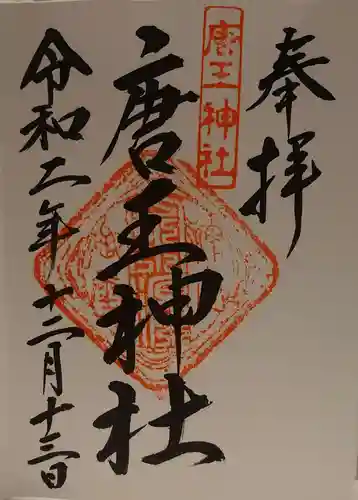 奉拝
唐王神社
唐王神社
令和二年十二月十三日